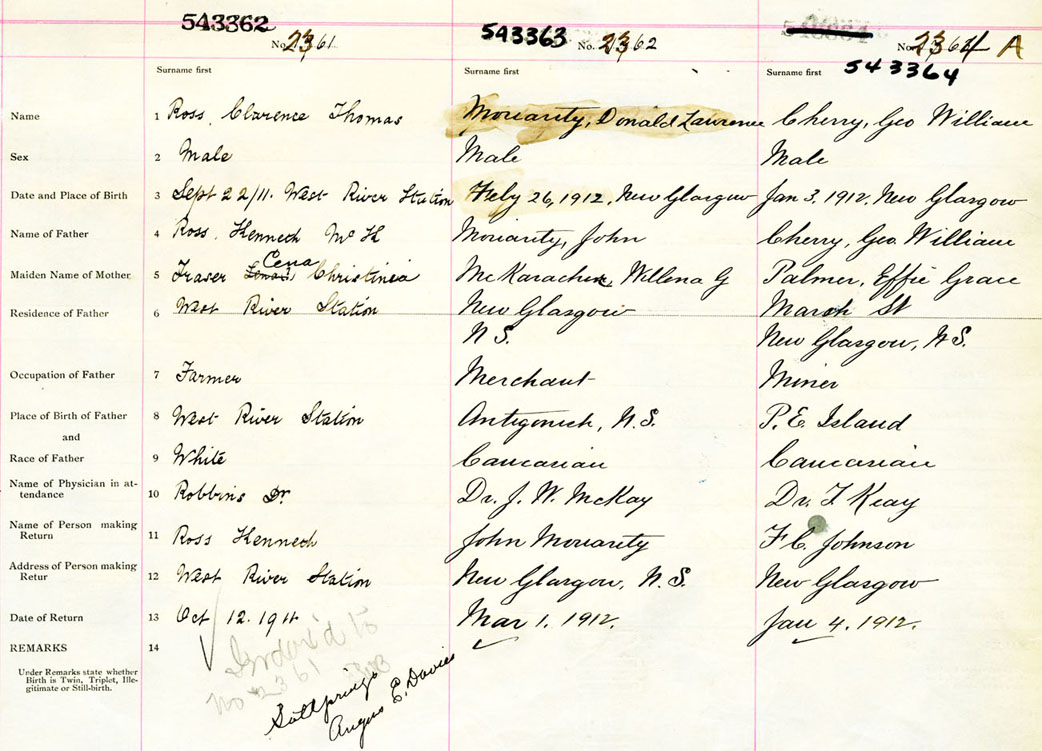 543362
No. 2361
543363
No. 2362
No. 2364 A
543364
Surname first
Surname first
Surname first
Name 1 Ross, Clarence Thomas Moriarity, Donald Lawrence Cherry, Geo William
Sex 2 Male Male Male
Date and Place of Birth 3 Sept 22/11. West River Station Feby 26, 1912, New Glasgow Jan 3, 1912, New Glasgow
Name of Father 4 Ross, Kenneth McK Moriarity, John Cherry, Geo. William
Cena
Maiden Name of Mother 5 Fraser Christinia McKaracher, Willena G Palmer, Effie Grace
Residence of Father 6 West River Station New Glasgow March St
N S. New Glasgow, N S.
Occupation of Father 7 Farmer Merchant Miner
Place of Birth of Father 8 West River Station Antigonish, N. S. P. E. Island
and
Race of Father 9 White Caucasian Caucasian
Name of Physician in at-
tendance 10 Robbins Dr. Dr. J. W. McKay Dr. F Keay
Name of Person making
Return 11 Ross Kenneth John Moriarity F C. Johnson
Address of Person making
Retur 12 West River Station New Glasgow, N. S. New Glasgow
Date of Return 13 Oct 12. 1911 Mar 1. 1912. Jan 4. 1912.
REMARKS 14
Under Remarks state whether
Birth is Twin, Triplet, Ille-
gitimate or Still-birth.
to
No 2361
Saltsprings
Angus E. Davies